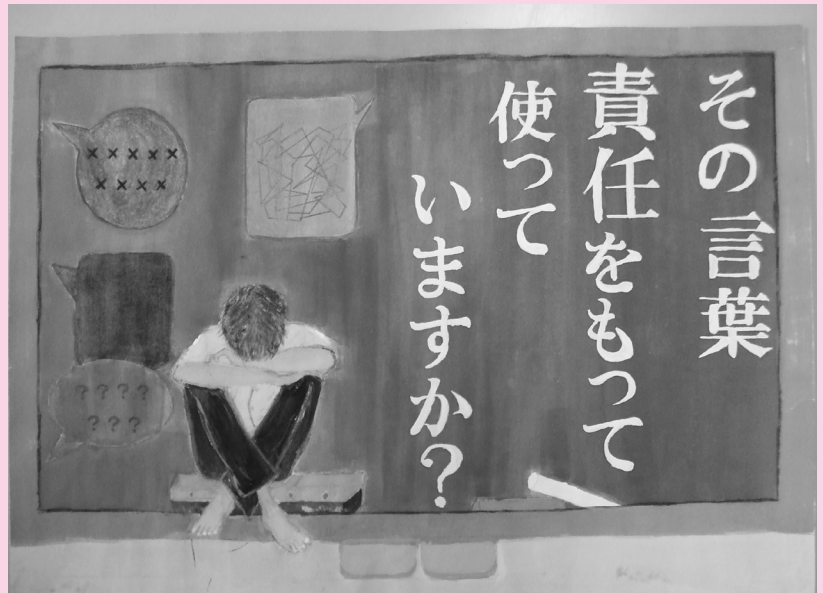 その言葉
責任をもって
使って
いますか?
×××××
××××
????
???